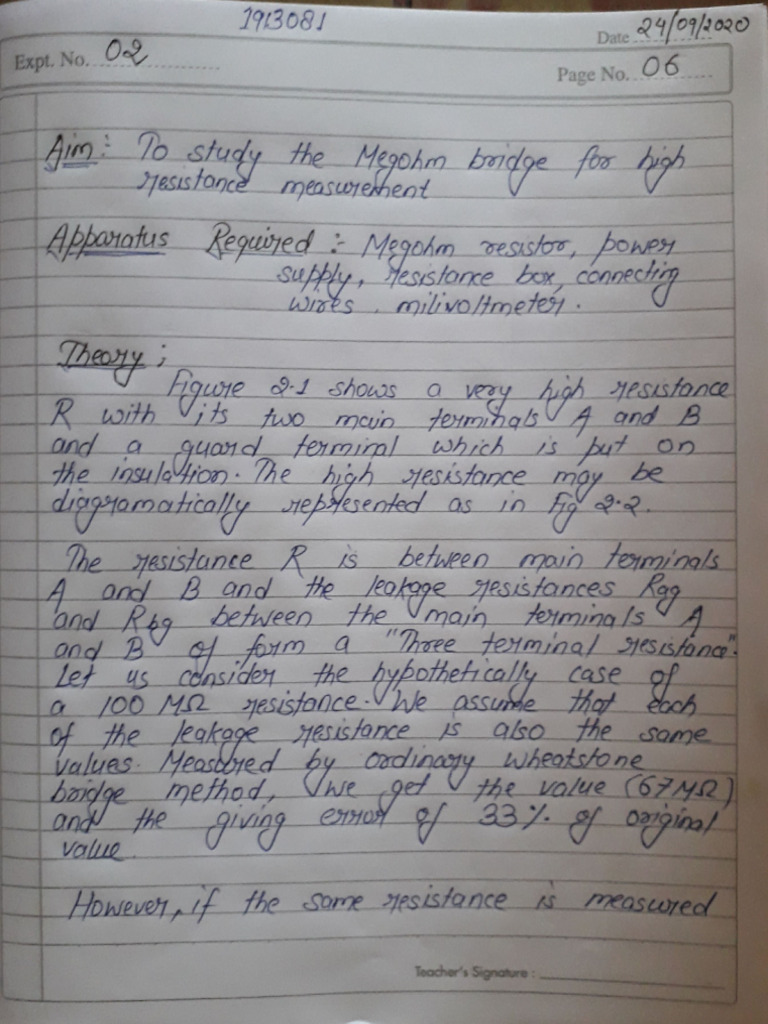 1913081
Date 24/09/2020
Expt. No. 02
Page No. 06
Aim:- To study the Megohm bridge for high
resistance measurement
Apparatus Required :- Megohm resistor, power
supply, resistance box, connecting
wires, milivoltmeter.
Theory ;
Figure 2.1 shows a very high resistance
R with its two main terminals A and B
and a guard terminal which is put on
the insulation. The high resistance may be
diagramatically represented as in Fig 2.2.
The resistance R is between main terminals
A and B and the leakage resistances Rag
and Rbg between the main terminals A
and B of form a "Three terminal resistance".
Let us consider the hypothetically case of
a 100 MΩ resistance. We assume that each
of the leakage resistance is also the same
values. Measured by ordinary wheatstone
bridge method, we get the value (67MΩ)
and the giving error of 33% of original
value.
However, if the same resistance is measured
Teacher's Signature :